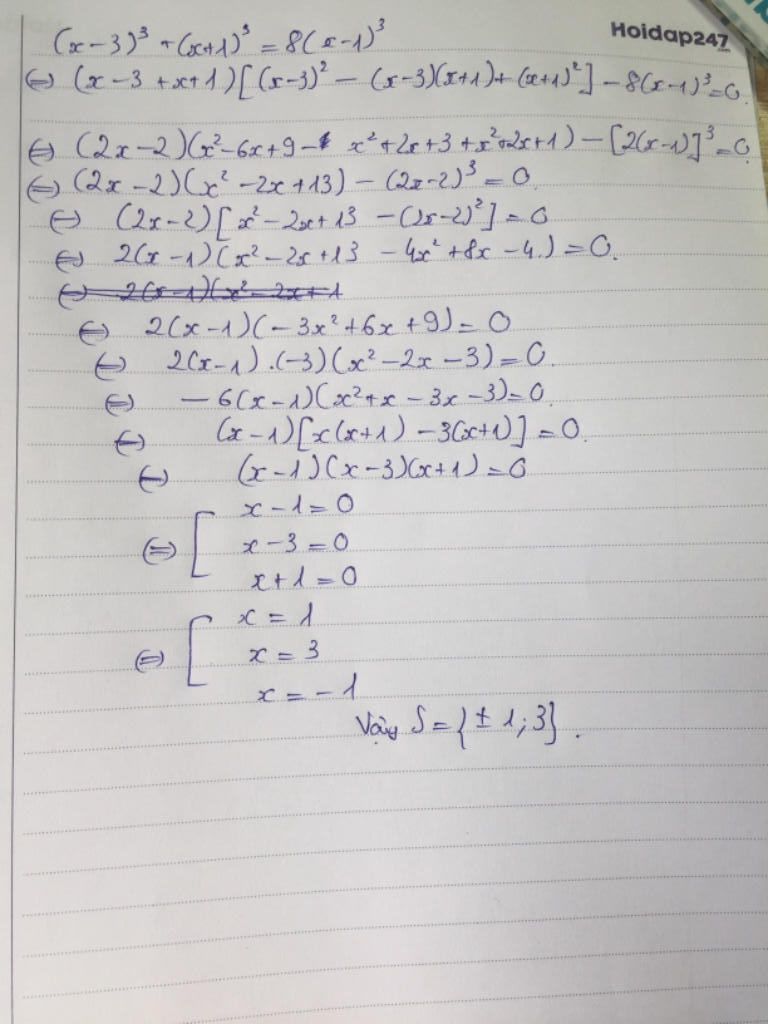 Hoidap247
(x-3)³ + (x+1)³ = 8(x-1)³
⇔ (x-3+x+1)[(x-3)² - (x-3)(x+1) + (x+1)²] - 8(x-1)³ = 0.
⇔ (2x-2)(x²-6x+9 - x²+2x+3+x²+2x+1) - [2(x-1)]³ = 0
⇔ (2x-2)(x²-2x+13) - (2x-2)³ = 0.
⇔ (2x-2)[x²-2x+13 - (2x-2)²] = 0
⇔ 2(x-1)(x²-2x+13 - 4x²+8x-4.) = 0.
⇔ 2(x-1)(x²-2x+1
⇔ 2(x-1)(-3x²+6x+9) = 0
⇔ 2(x-1).(-3)(x²-2x-3) = 0.
⇔ -6(x-1)(x²+x-3x-3) = 0.
⇔ (x-1)[x(x+1) - 3(x+1)] = 0.
⇔ (x-1)(x-3)(x+1) = 0
x-1 = 0
⇔ [ x-3 = 0
x+1 = 0
x = 1
⇔ [ x = 3
x = -1
Vậy S = {±1; 3}.